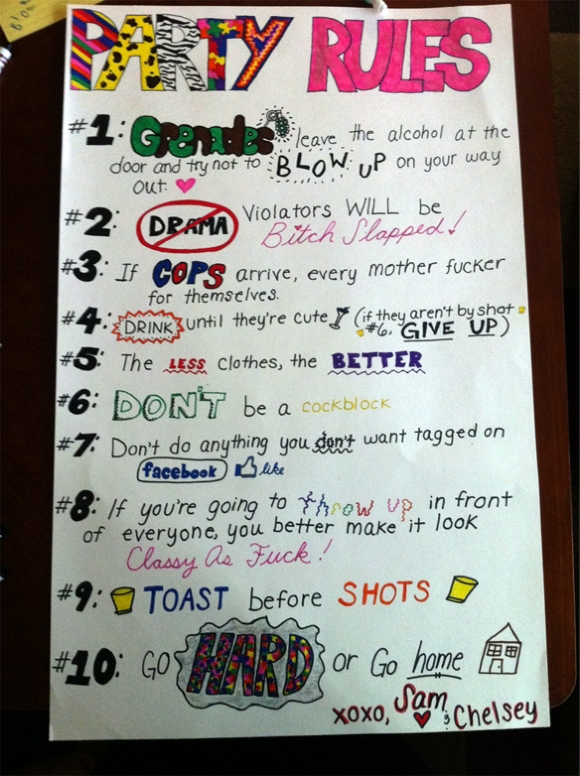 PARTY RULES
#1: Grenades leave the alcohol at the
door and try not to BLOW UP on your way
out.
#2: DRAMA Violators WILL be
Bitch Slapped!
#3: If COPS arrive, every mother fucker
for themselves.
#4: DRINK until they're cute (if they aren't by shot
#6, GIVE UP)
#5: The LESS clothes, the BETTER
#6: DON'T be a cockblock
#7: Don't do anything you don't want tagged on
facebook like
#8: If you're going to Throw up in front
of everyone, you better make it look
Classy As Fuck!
#9: TOAST before SHOTS
#10: GO HARD or Go home
xoxo, Sam & Chelsey